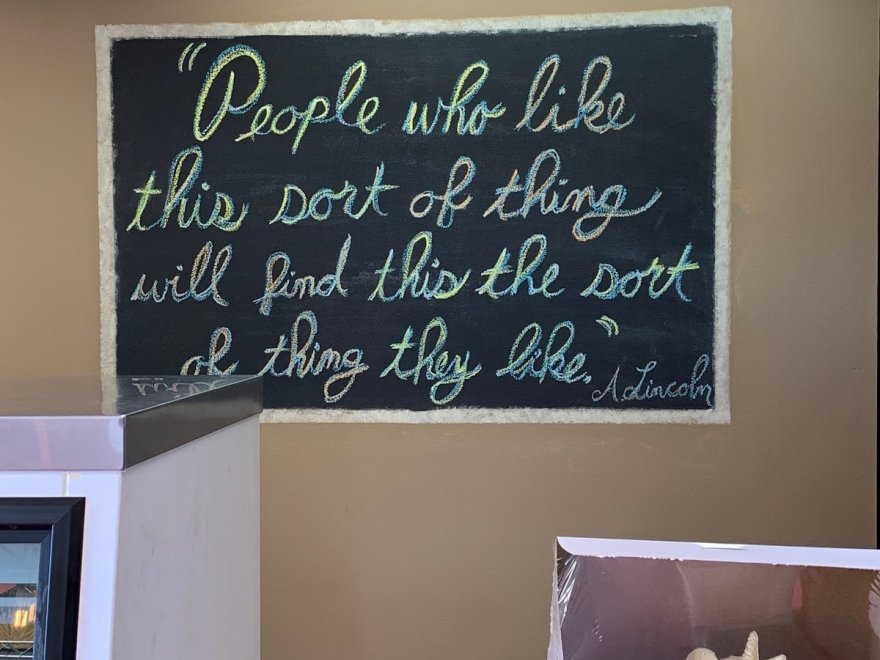 "People who like
this sort of thing
will find this the sort
of thing they like."
A. Lincoln